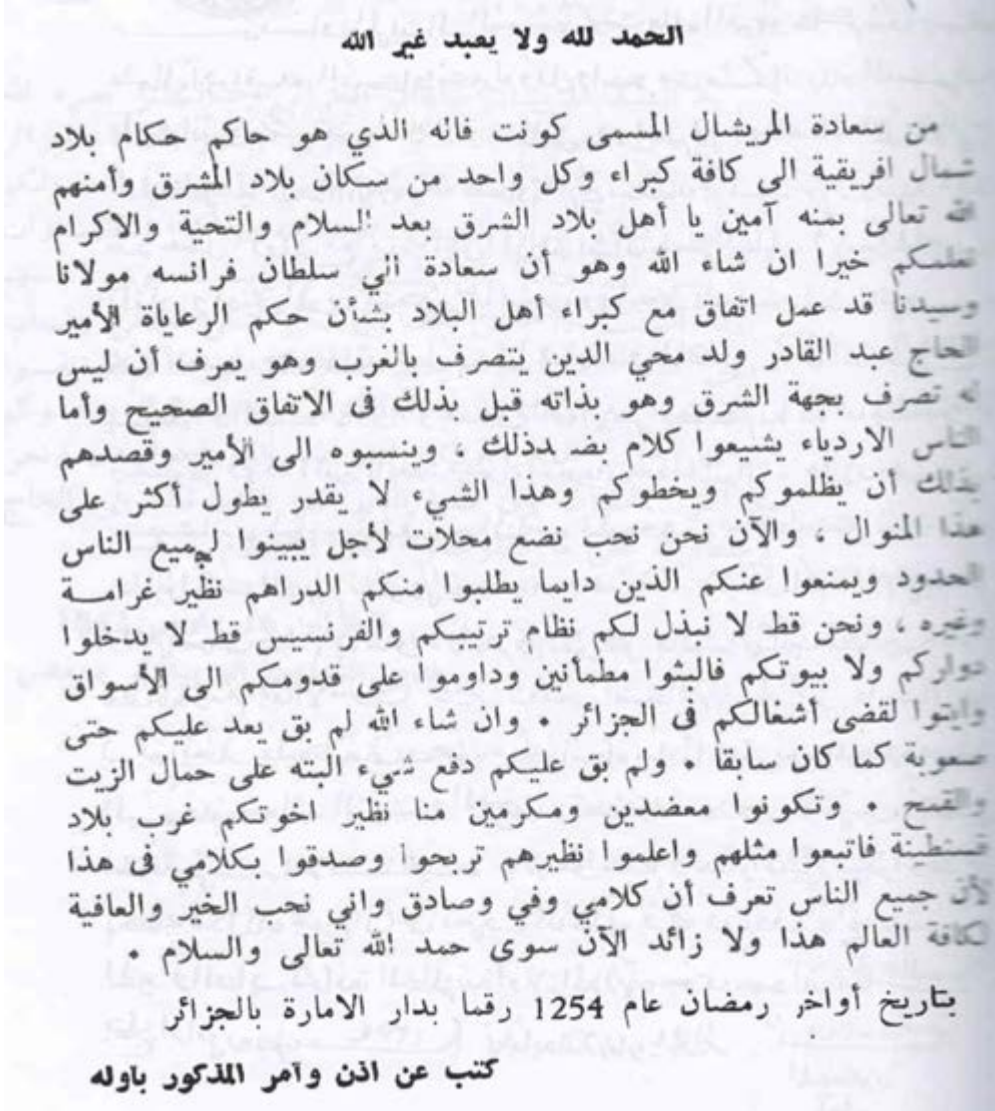 الحمد لله ولا يعبد غير الله
من سعادة المريشال المسمى كونت فاله الذي هو حاكم حكام بلاد
شمال افريقية الى كافة كبراء وكل واحد من سكان بلاد المشرق وأمنهم
الله تعالى بمنه آمين يا أهل بلاد الشرق بعد السلام والتحية والاكرام
نعلمكم خيرا ان شاء الله وهو أن سعادة الي سلطان فرانسه مولانا
وسيدنا قد عمل اتفاق مع كبراء أهل البلاد بشأن حكم الرعاياة الأمير
الحاج عبد القادر ولد محي الدين يتصرف بالغرب وهو يعرف أن ليس
له تصرف بجهة الشرق وهو بذاته قبل بذلك فى الاتفاق الصحيح وأما
الناس الاردياء يشيعوا كلام بضدذلك ، وينسبوه الى الأمير وقصدهم
بذلك أن يظلموكم ويخطوكم وهذا الشيء لا يقدر يطول أكثر على
هذا المنوال ، والآن نحن نحب نضع محلات لأجل يبينوا لجميع الناس
الحدود ويمنعوا عنكم الذين دايما يطلبوا منكم الدراهم نظير غرامــة
وغيره ، ونحن قط لا نبذل لكم نظام ترتيبكم والفرنسيس قط لا يدخلوا
دواركم ولا بيوتكم فالبثوا مطمأنين وداوموا على قدومكم الى الأسواق
وايتوا لقضى أشغالكم فى الجزائر • وان شاء الله لم بق بعد عليكم حتى
صعوبة كما كان سابقا • ولم بق عليكم دفع شيء البته على حمال الزيت
والقمح • وتكونوا معضدين ومكرمين منا نظير اخوتكم غرب بلاد
قسنطينة فاتبعوا مثلهم واعلموا نظيرهم تربحوا وصدقوا بكلامي فى هذا
لأن جميع الناس تعرف أن كلامي وفي وصادق واني نحب الخير والعافية
لكافة العالم هذا ولا زائد الآن سوى حمد الله تعالى والسلام •
بتاريخ أواخر رمضان عام 1254 رقما بدار الامارة بالجزائر
كتب عن اذن وآمر المذكور بأوله